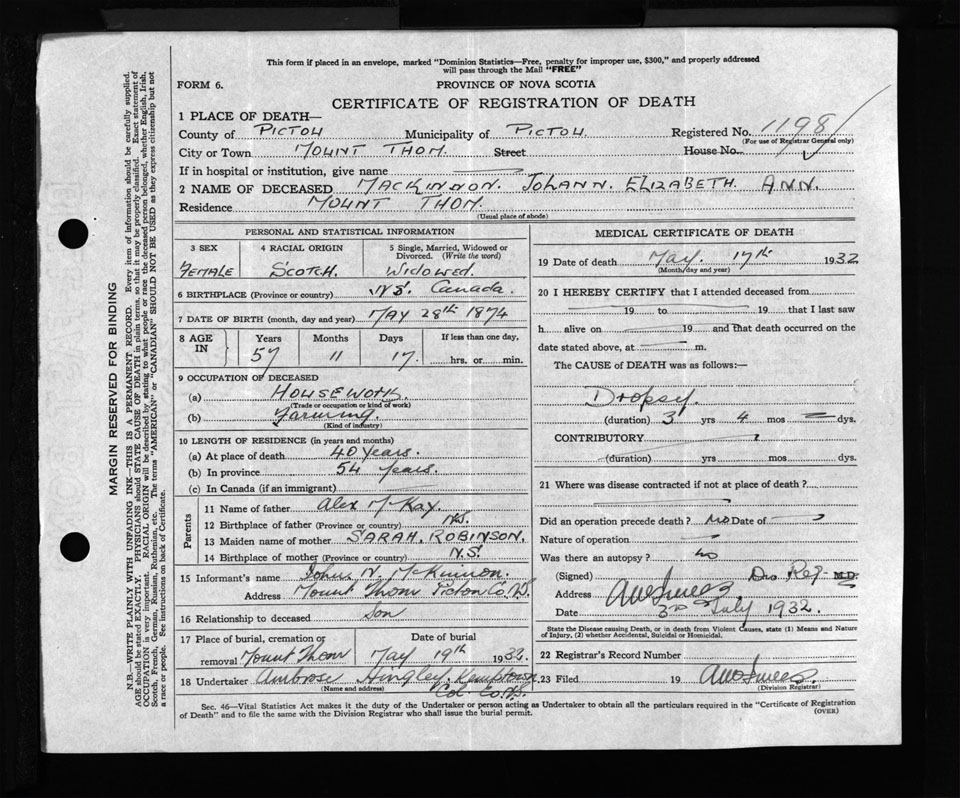 This form if placed in an envelope, marked "Dominion Statistics—Free, penalty for improper use, $300," and properly addressed
will pass through the Mail "FREE"
FORM 6.
PROVINCE OF NOVA SCOTIA
CERTIFICATE OF REGISTRATION OF DEATH
1 PLACE OF DEATH—
County of PICTOU Municipality of PICTOU. Registered No. 1198
(For use of Registrar General only)
City or Town MOUNT THOM. Street House No.
If in hospital or institution, give name
2 NAME OF DECEASED MACKINNON. JOHANN. ELIZABETH. ANN.
Residence MOUNT THOM.
(Usual place of abode)
PERSONAL AND STATISTICAL INFORMATION
3 SEX 4 RACIAL ORIGIN 5 Single, Married, Widowed or
Divorced. (Write the word)
FEMALE SCOTCH. WIDOWED.
6 BIRTHPLACE (Province or country) N.S. Canada.
7 DATE OF BIRTH (month, day and year) MAY 28th 1874
8 AGE IN Years Months Days If less than one day,
57 11 17. hrs. or min.
9 OCCUPATION OF DECEASED
(a) HOUSEWORK.
(Trade or occupation or kind of work)
(b) Farming.
(Kind of industry)
10 LENGTH OF RESIDENCE (in years and months)
(a) At place of death 40 Years.
(b) In province 54 Years.
(c) In Canada (if an immigrant)
Parents
11 Name of father Alex McKay.
12 Birthplace of father (Province or country) N.S.
13 Maiden name of mother SARAH. ROBINSON.
14 Birthplace of mother (Province or country) N.S.
15 Informant's name John N. McKinnon.
Address Mount Thom Pictou Co. N.S.
16 Relationship to deceased Son
17 Place of burial, cremation or Date of burial
removal Mount Thom May 19th 1932.
18 Undertaker Ambrose Hingley, Kemptown
(Name and address) Col. Co. N.S.
MEDICAL CERTIFICATE OF DEATH
19 Date of death May. 17th 1932
(Month/day and year)
20 I HEREBY CERTIFY that I attended deceased from
19 to 19 that I last saw
h alive on 19 and that death occurred on the
date stated above, at m.
The CAUSE of DEATH was as follows:—
Dropsy.
(duration) 3 yrs 4 mos dys.
CONTRIBUTORY
(duration) yrs mos dys.
21 Where was disease contracted if not at place of death?
Did an operation precede death? NO Date of
Nature of operation
Was there an autopsy? NO
(Signed) Div Reg. M.D.
Address
Date 3rd July 1932.
State the Disease causing Death, or in death from Violent Causes, state (1) Means and Nature
of Injury, (2) whether Accidental, Suicidal or Homicidal.
22 Registrar's Record Number
23 Filed 19
(Division Registrar)
Sec. 46—Vital Statistics Act makes it the duty of the Undertaker or person acting as Undertaker to obtain all the particulars required in the "Certificate of Registration
of Death" and to file the same with the Division Registrar who shall issue the burial permit.
(OVER)
MARGIN RESERVED FOR BINDING
N.B.—WRITE PLAINLY WITH UNFADING INK—THIS IS A PERMANENT RECORD. Every item of information should be carefully supplied.
AGE should be stated EXACTLY. PHYSICIANS should STATE CAUSE OF DEATH in plain terms, so that it may be properly classified. Exact statement of
OCCUPATION is very important. RACIAL ORIGIN will be described by stating to what people or race the deceased person belonged, whether English, Irish,
Scotch, French, German, Russian, Ruthenian, etc. The terms "AMERICAN" or "CANADIAN" SHOULD NOT BE USED as they express citizenship but not
a race or people. See instructions on back of Certificate.